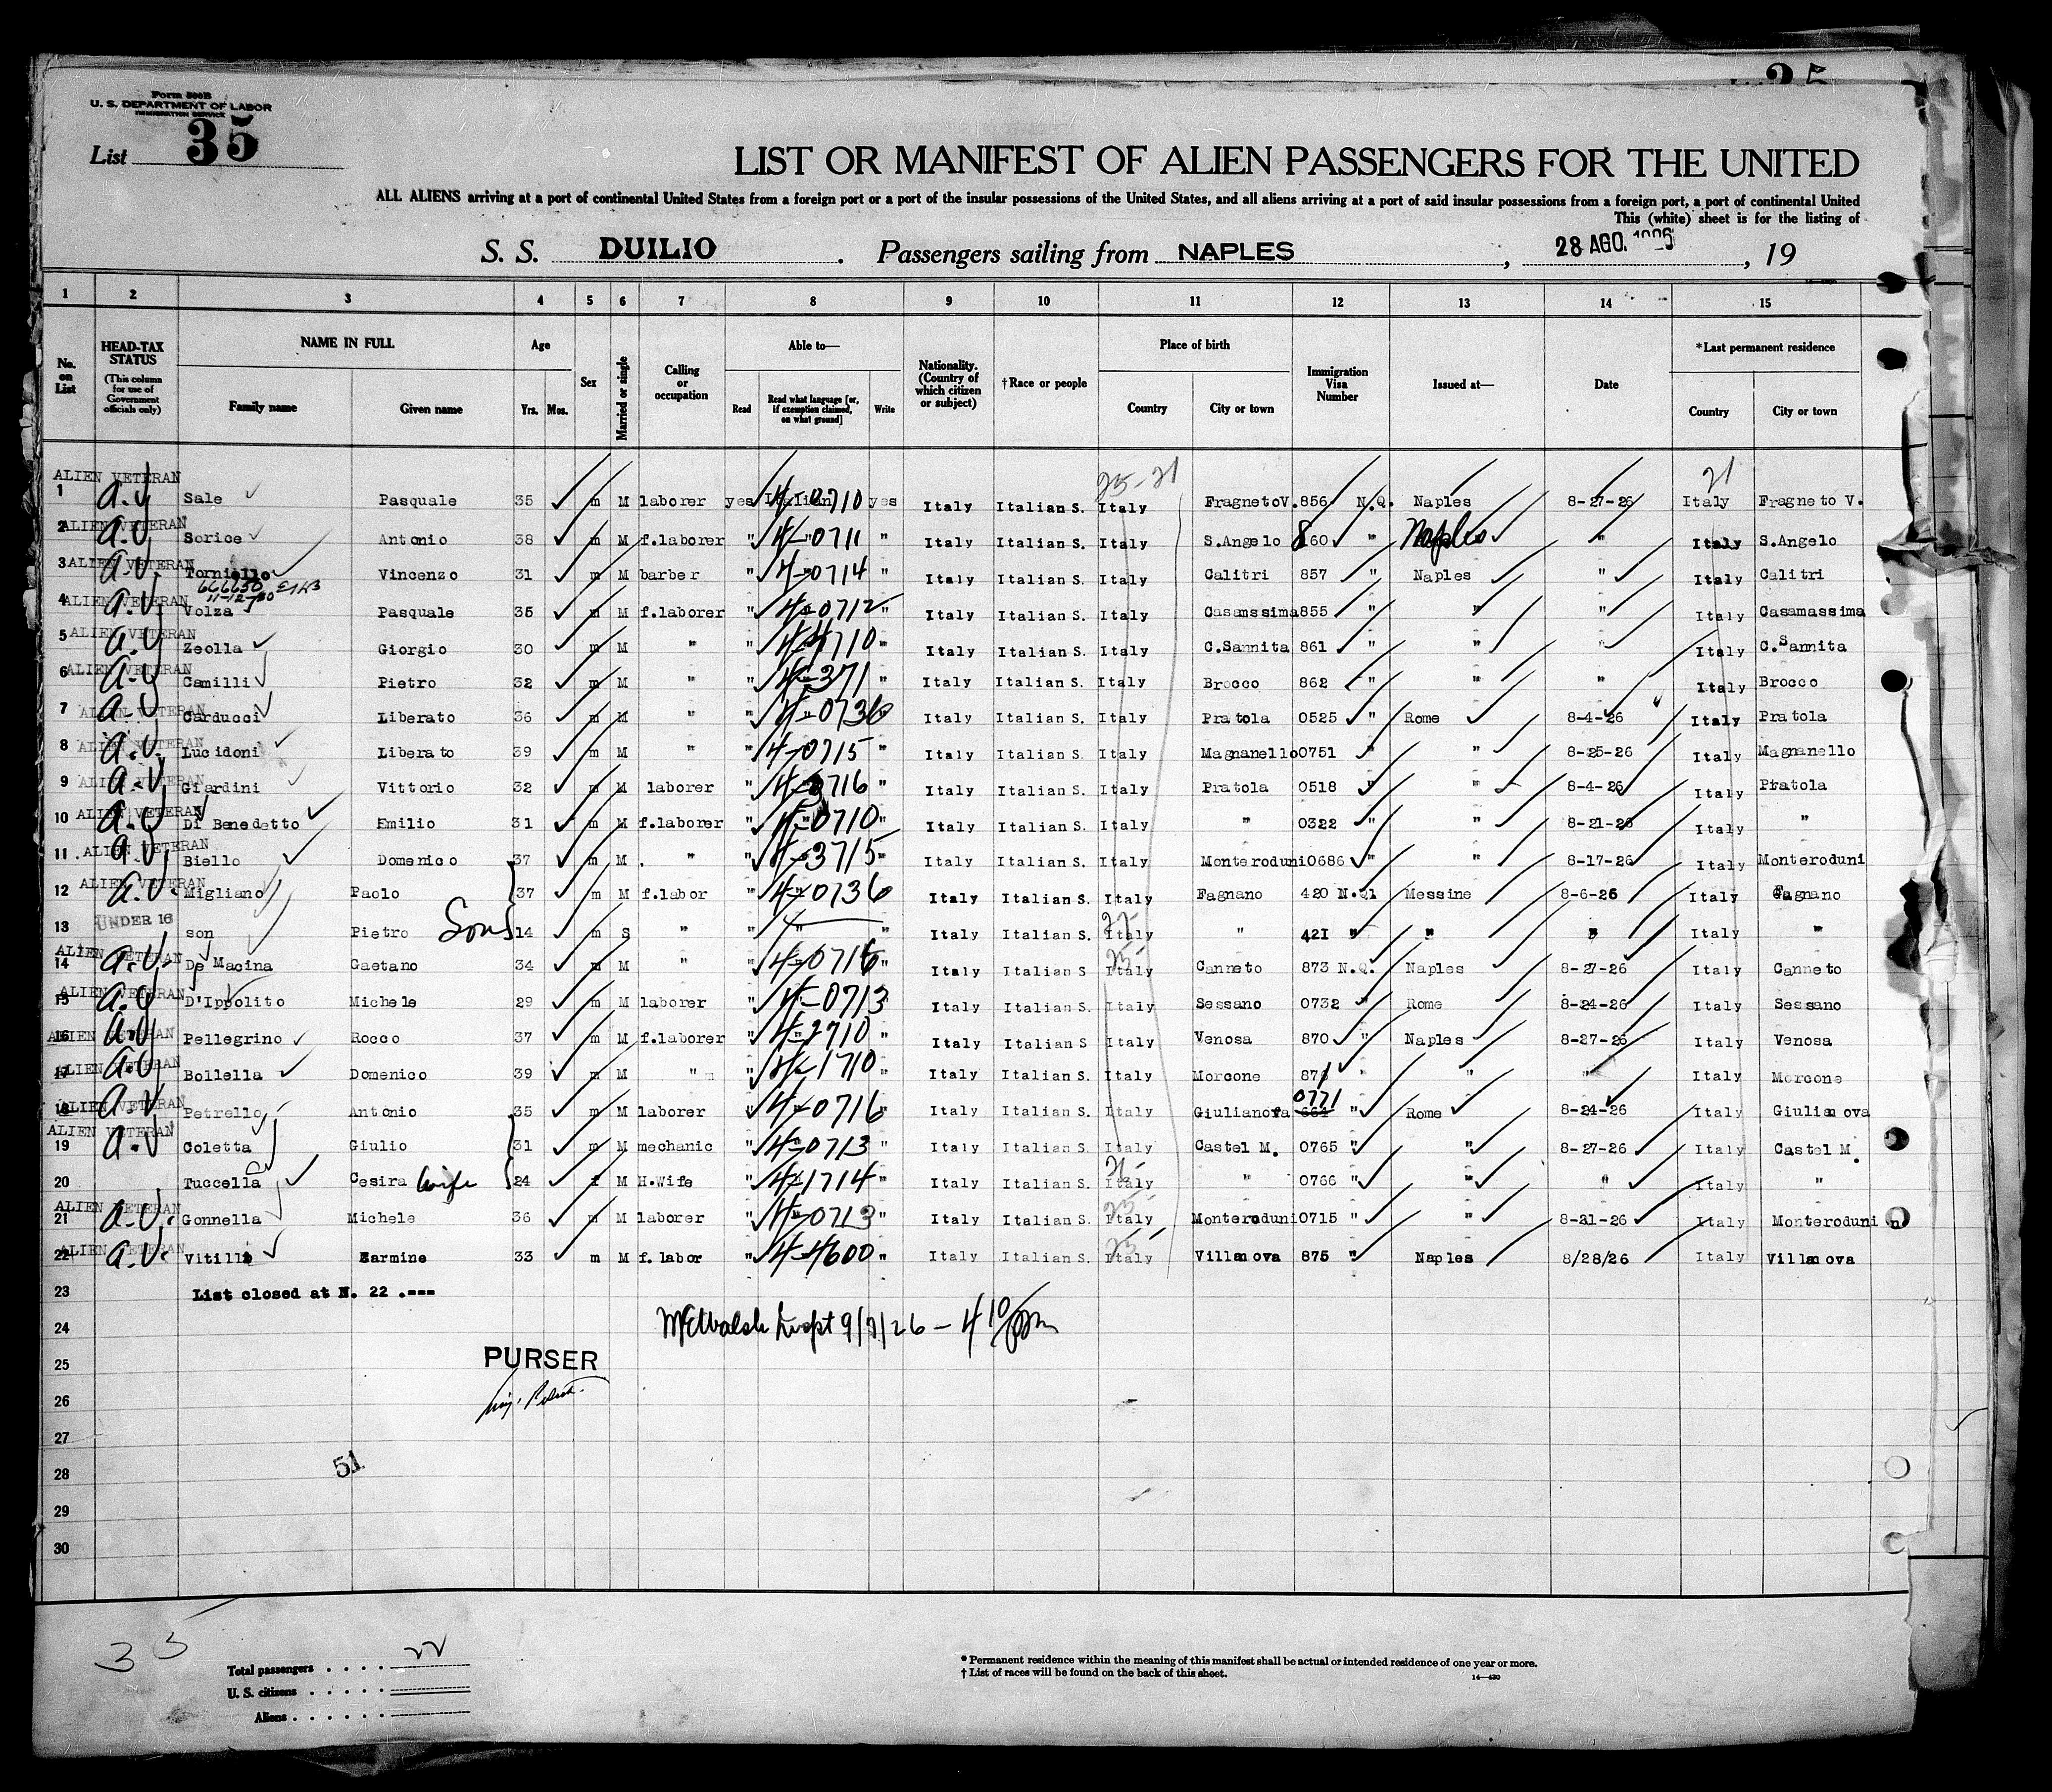 Form 500B
U. S. DEPARTMENT OF LABOR
IMMIGRATION SERVICE
List 35
LIST OR MANIFEST OF ALIEN PASSENGERS FOR THE UNITED
ALL ALIENS arriving at a port of continental United States from a foreign port or a port of the insular possessions of the United States, and all aliens arriving at a port of said insular possessions from a foreign port, a port of continental United
This (white) sheet is for the listing of
S. S. DUILIO . Passengers sailing from NAPLES , 28 AGO. 1926 , 19
1 2 3 4 5 6 7 8 9 10 11 12 13 14 15
No. on List
HEAD-TAX STATUS
(This column for use of Government officials only)
NAME IN FULL
Family name Given name
Age
Yrs. Mos.
Sex
Married or single
Calling or occupation
Able to—
Read Read what language [or, if exemption claimed, on what ground] Write
Nationality. (Country of which citizen or subject)
†Race or people
Place of birth
Country City or town
Immigration Visa Number
Issued at—
Date
*Last permanent residence
Country City or town
25-21 21
ALIEN VETERAN
1 a.v Sale Pasquale 35 m M laborer yes Italian 4-0710 yes Italy Italian S. Italy FragnetoV. 856 N.Q. Naples 8-27-26 Italy Fragneto V.
ALIEN VETERAN
2 a.v. Sorice Antonio 38 m M f.laborer " 4-0711 " Italy Italian S. Italy S.Angelo 860 " Naples " Italy S.Angelo
ALIEN VETERAN
3 a.v. Torniello Vincenzo 31 m M barber " 4-0714 " Italy Italian S. Italy Calitri 857 " Naples " Italy Calitri
666650
ALIEN VETERAN
4 a.v. Volza Pasquale 35 m M f.laborer " 4-0712 " Italy Italian S. Italy Casamssima 855 " " " Italy Casamassima
ALIEN VETERAN
5 a.v Zeolla Giorgio 30 m M " " 4-4710 " Italy Italian S. Italy C.Sannita 861 " " " Italy C.Sannita
ALIEN VETERAN
6 a.v Camilli Pietro 32 m M " " 4-371 " Italy Italian S. Italy Brocco 862 " " " Italy Brocco
ALIEN VETERAN
7 a.v Carducci Liberato 36 m M " " 4-0736 Italy Italian S. Italy Pratola 0525 " Rome 8-4-26 Italy Pratola
ALIEN VETERAN
8 a.v. Lucidoni Liberato 39 m M " " 4-0715 " Italy Italian S. Italy Magnanello 0751 " " 8-25-26 Italy Magnanello
ALIEN VETERAN
9 a.v. Giardini Vittorio 32 m M laborer " 4-3716 " Italy Italian S. Italy Pratola 0518 " " 8-4-26 Italy Pratola
ALIEN VETERAN
10 a.v. Di Benedetto Emilio 31 m M f.laborer " 4-0710 " Italy Italian S. Italy " 0322 " " 8-21-26 Italy "
ALIEN VETERAN
11 a.v. Biello Domenico 37 m M. " " 4-3715 " Italy Italian S. Italy Monteroduni 0686 " " 8-17-26 Italy Monteroduni
ALIEN VETERAN
12 a.v. Migliano Paolo 37 m M f.labor " 4-0736 Italy Italian S. Italy Fagnano 420 N.Q1 Messine 8-6-26 Italy Fagnano
UNDER 16
13 son Pietro Son 14 m S " " " " Italy Italian S. Italy " 421 " " " Italy "
ALIEN VETERAN
14 a.v. De Macina Gaetano 34 m M " " 4-0716 " Italy Italian S Italy Canneto 873 N.Q. Naples 8-27-26 Italy Canneto
ALIEN VETERAN
15 a.v D'Ippolito Michele 29 m M laborer " 4-0713 Italy Italian S. Italy Sessano 0732 " Rome 8-24-26 Italy Sessano
ALIEN VETERAN
16 a.v Pellegrino Rocco 37 m M f.laborer " 4-2710 " Italy Italian S Italy Venosa 870 " Naples 8-27-26 Italy Venosa
ALIEN VETERAN
17 a.v Bollella Domenico 39 m M " " 4-1710 " Italy Italian S. Italy Morcone 871 " " " Italy Morcone
ALIEN VETERAN
18 a.v. Petrello Antonio 35 m M laborer " 4-0716 Italy Italian S. Italy Giulianova 0771 " Rome 8-24-26 Italy Giulianova
ALIEN VETERAN
19 a.v Coletta Giulio 31 m M mechanic " 4-0713 " Italy Italian S. Italy Castel M. 0765 " " 8-27-26 Italy Castel M.
20 Tuccella Cesira Wife 24 f M H.Wife " 4-1714 " Italy Italian S. Italy " 0766 " " " Italy "
ALIEN VETERAN
21 a.v. Gonnella Michele 36 m M laborer " 4-0713 " Italy Italian S. Italy Monteroduni 0715 " " 8-21-26 Italy Monteroduni
ALIEN VETERAN
22 a.v. Vitillo Earmine 33 m M f.labor " 4-4600 " Italy Italian S. Italy Villanova 875 " Naples 8/28/26 Italy Villanova
23 List closed at N. 22 .---
24 Inspt 9/7/26 — 4 10
25 PURSER
26
27
28 51
29
30
33
Total passengers . . . . 22
U. S. citizens . . . . .
Aliens . . . . . .
* Permanent residence within the meaning of this manifest shall be actual or intended residence of one year or more.
† List of races will be found on the back of this sheet.
14—430